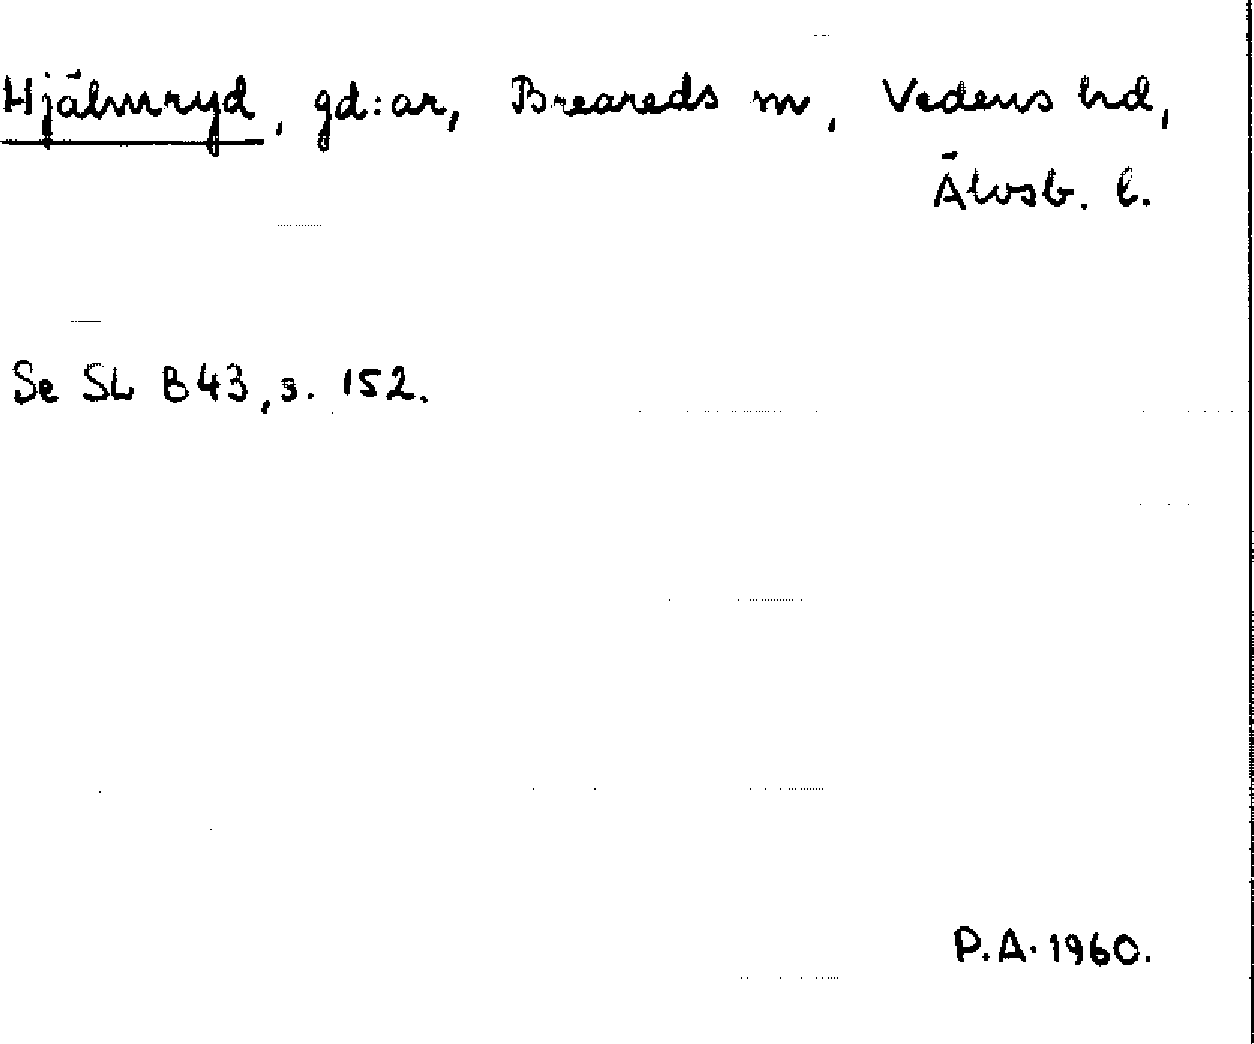 Hjälmryd, gd:ar, Breareds sn, Vedens hd,
Älvsb. l.
Se SL B43, s. 152.
P.A. 1960.